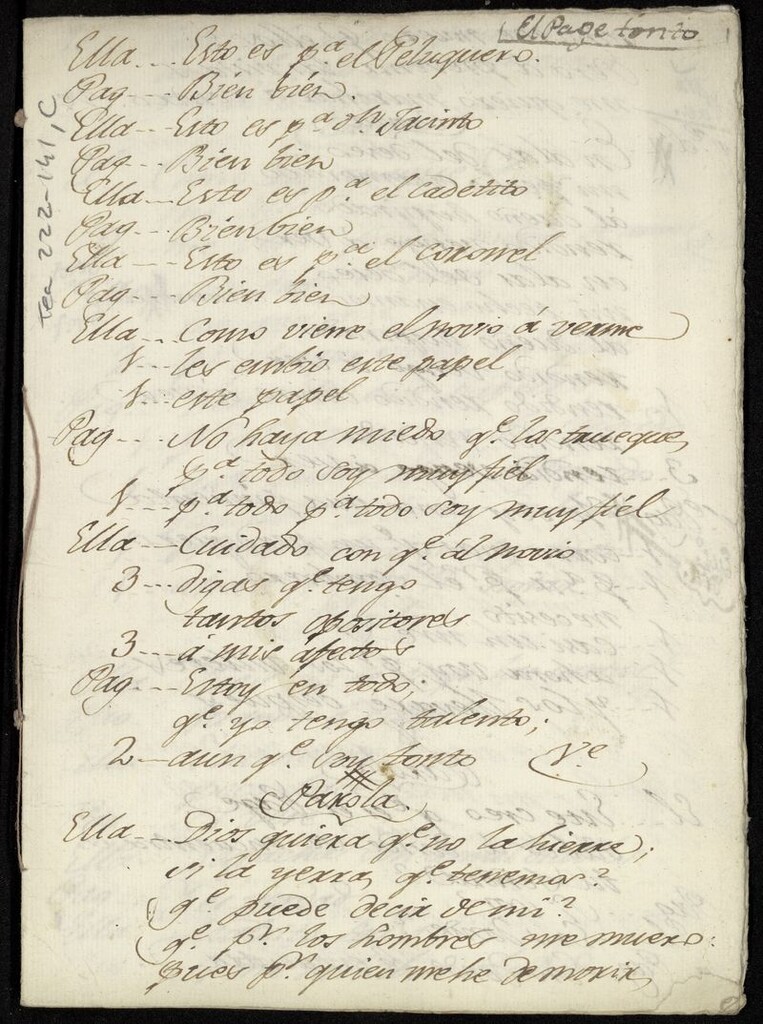 El Page tonto
Tea 222-141, C
Ella... Esto es p.ª el Peluquero.
Pag... Bién bién.
Ella... Esto es p.ª dn. Jacinto
Pag... Bien bien
Ella... Esto es p.ª el cadetito
Pag... Bien bien
Ella... Esto es p.ª el coronel
Pag... Bien bien
Ella... Como viene el novio á verme
les embio este papel
este papel
Pag... No haya miedo q.e los trueque,
p.ª todo soy muy fiel
p.ª todo p.ª todo soy muy fiel
Ella... Cuidado con q.e ál novio
3... digas q.e tengo
tantos opositores
3... á mis áfectos
Pag... Estoy en todo;
q.e yo tengo talento;
2... aun q.e soy tonto V.e
Parola.
Ella... Dios quiera q.e no la hierre;
si la yerra, q.e tenemos?
q.e puede decir de mi?
q.e p.r los hombres me muero:
pues p.r quien me he de morir,